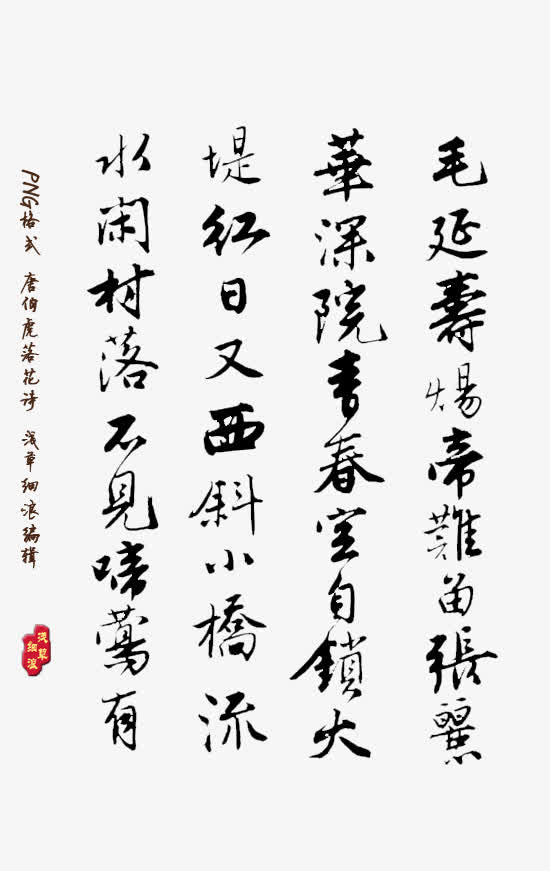 毛延壽煬帝難留張麗
華深院青春空自鎖大
堤紅日又西斜小橋流
水閑村落不見啼鶯有
PNG格式 唐伯虎落花诗 浅草细浪编辑
浅草
细浪